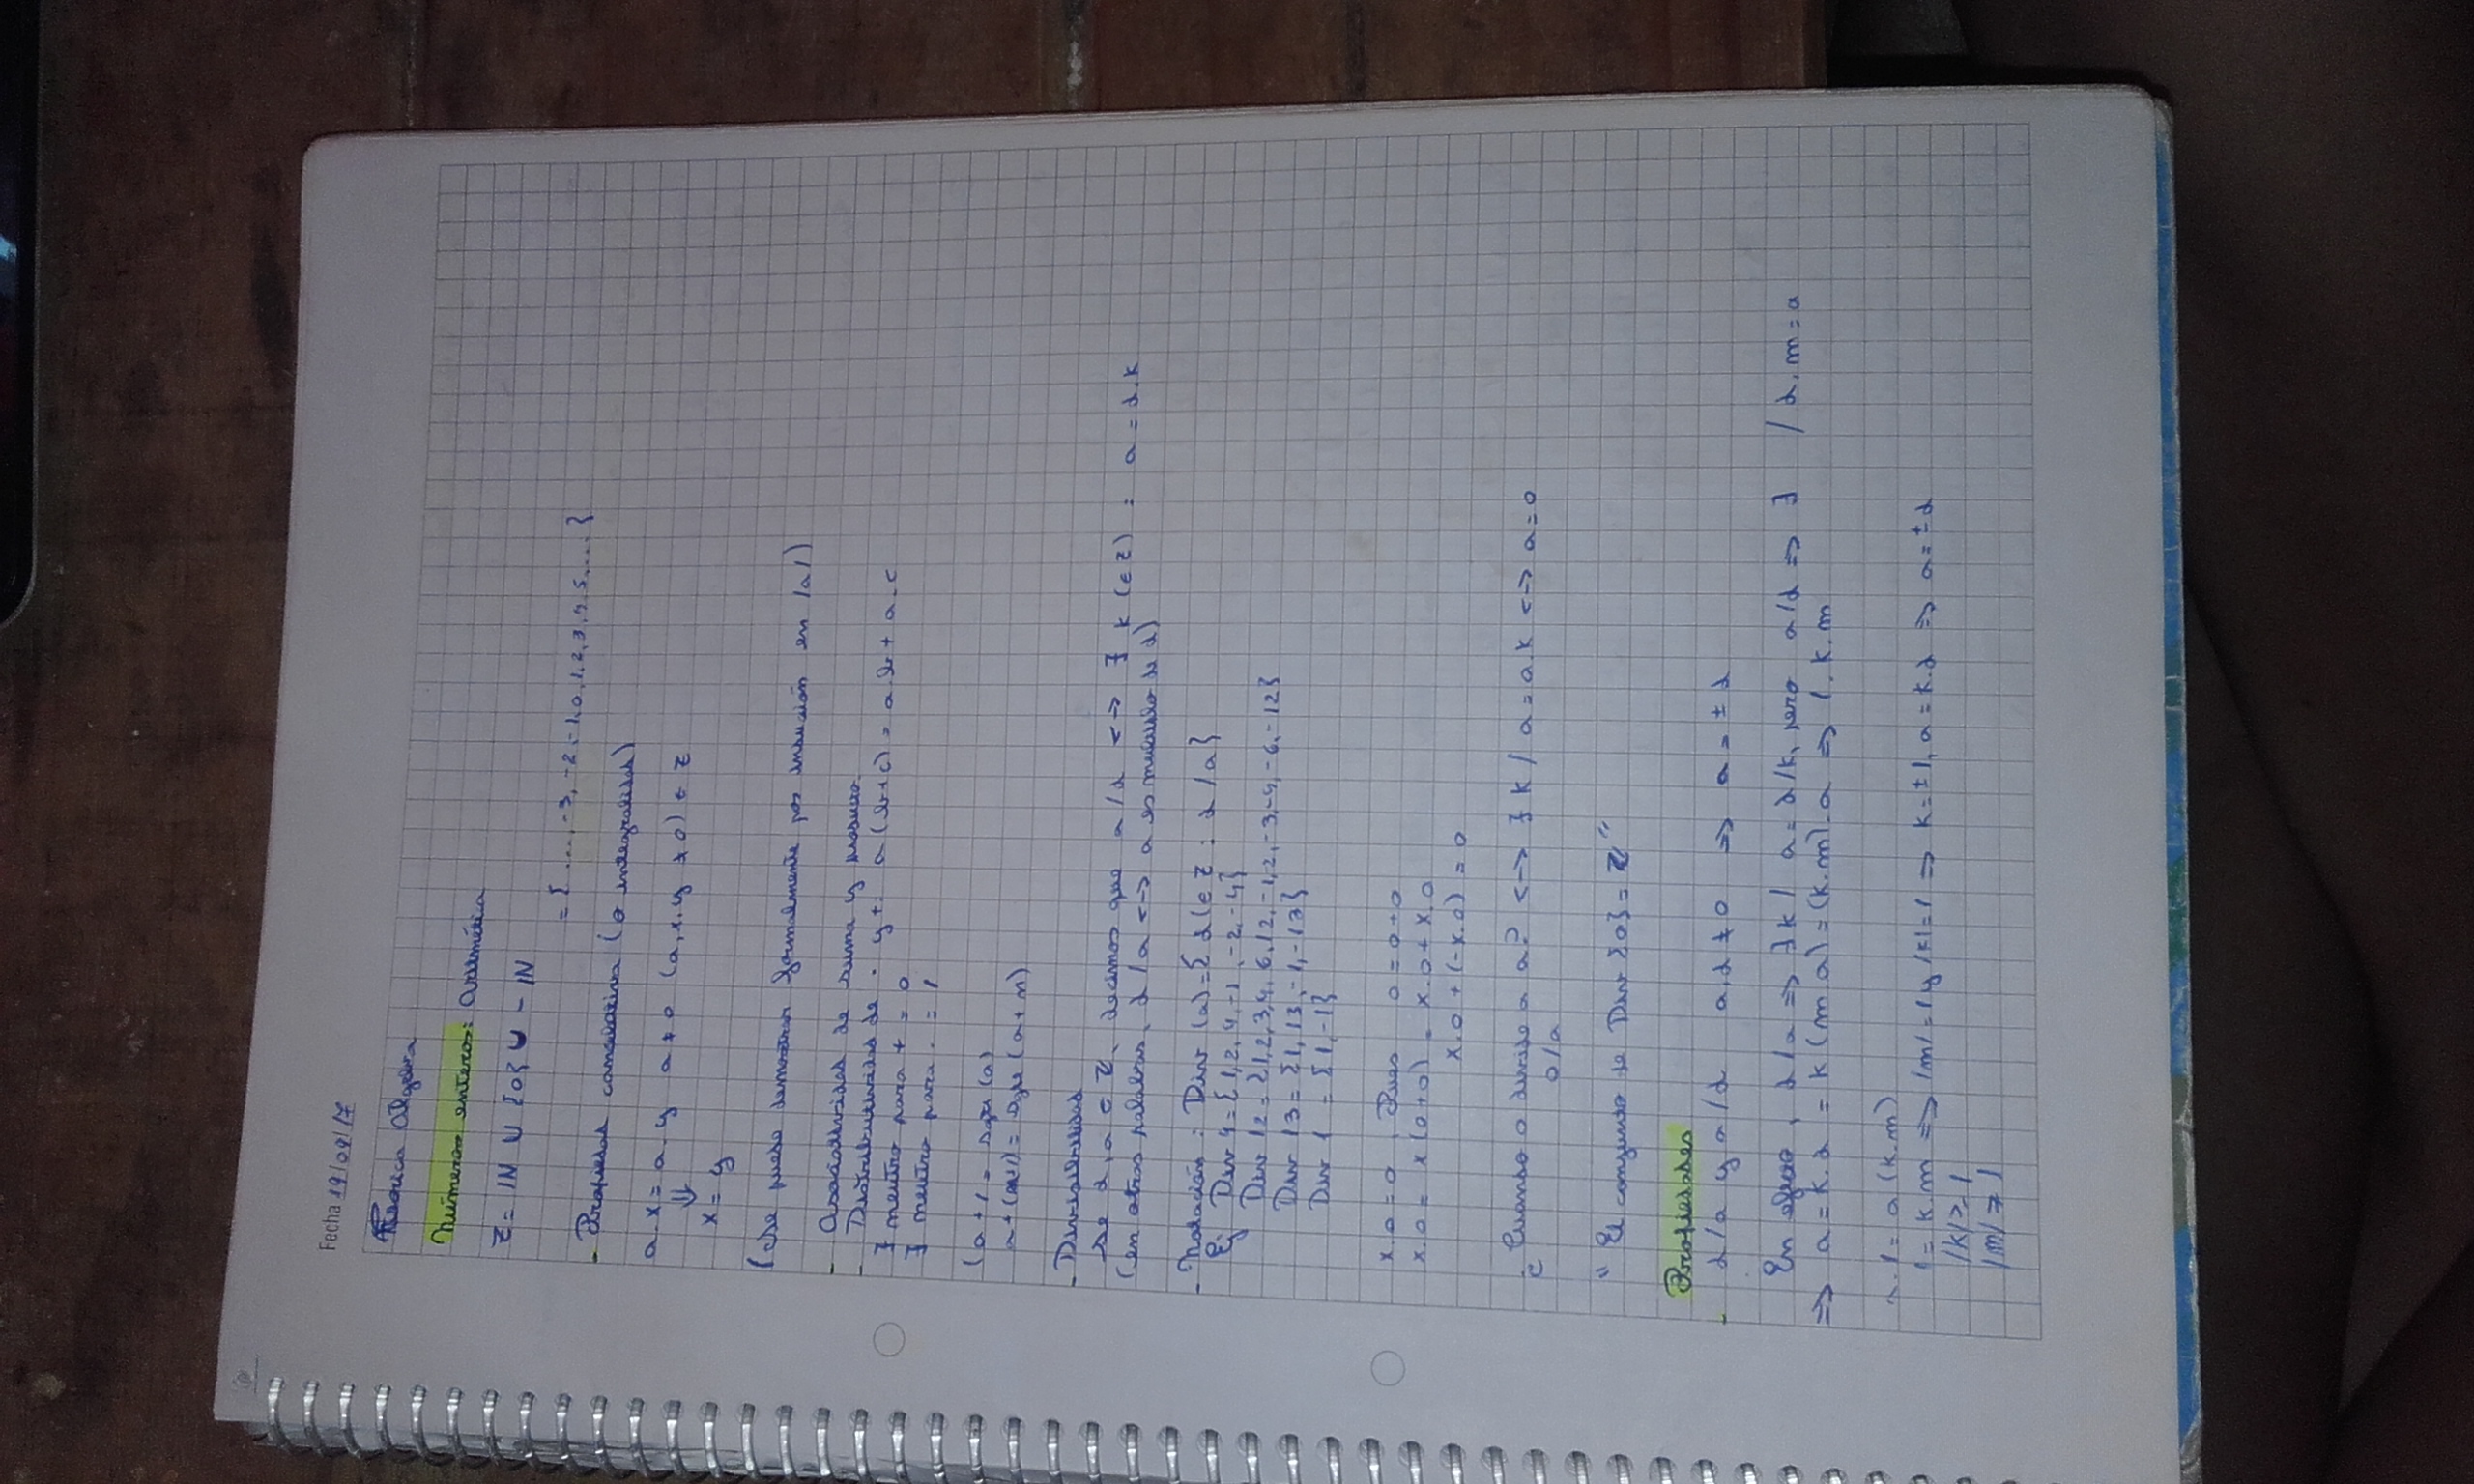 Fecha 19/09/17
Teorica Algebra
Números enteros: Aritmética
Z = IN U {0} U - IN
= { ...., -3, -2, -1, 0, 1, 2, 3, 4, 5, .... }
- Propiedad cancelativa (o integralidad)
a.x = a.y a ≠ 0 (a, x, y ≠ 0) ∈ Z
⇓
x = y
(Se puede demostrar formalmente por inducción en |a|)
- Asociatividad de suma y producto.
- Distributividad de . y +: a (b+c) = a.b + a.c
∃ neutro para + = 0
∃ neutro para . = 1
(a + 1 = sgte (a)
a + (n+1) = sgte (a + n)
- Divisibilidad
Se d, a ∈ Z, decimos que a/d <-> ∃ k (∈ Z) : a = d.k
(en otras palabras, d/a <-> a es multiplo de d)
- Notación : Div (a) = { d (∈ Z : d/a}
Ej Div 4 = {1, 2, 4, -1, -2, -4}
Div 12 = {1, 2, 3, 4, 6, 12, -1, 2, -3, -4, -6, -12}
Div 13 = {1, 13, -1, -13}
Div 1 = {1, -1}
x.0 = 0, Pues 0 = 0+0
x.0 = x (0+0) = x.0 + x.0
x.0 + (-x.0) = 0
¿ Cuando 0 divide a a? <-> ∃ k / a = a.k <-> a = 0
0/a
" El conjunto de Div {0} = Z "
Propiedades
- d/a y a/d a, d ≠ 0 => a = ± d
En efecto, d/a => ∃ k / a = d/k, pero a/d => ∃ / d.m = a
=> a = k.d = k (m a) = (k.m).a => 1. k.m
.1 = a (k.m)
1 = k.m => |m| = 1 y |k| = 1 => k = ±1, a = k.d => a = ± d
|k| ≥ 1
|m| ≥ 1